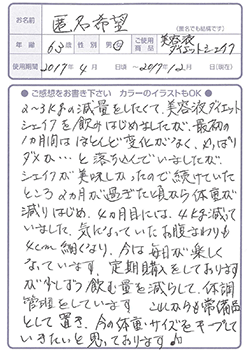 お名前 匿名希望
(匿名でも結構です)
年齢 63才 性別 男・女 ご使用商品 美容液ダイエットシェイク
使用期間 2017年 4月 日頃 ~ 2017年12月 日(現在)
● ご感想をお書き下さい カラーのイラストもOK! ●
2~3Kgの減量をしたくて、美容液ダイエット
シェイクを飲みはじめましたが、最初の
1ヵ月間はほとんど変化がなく、やっぱり
ダメか…と落ち込んでいましたが、
シェイクが美味しかったので続けていた
ところ2ヵ月が過ぎた頃から体重が
減りはじめ、4ヵ月目には、4Kg減って
いました、気になっていたお腹まわりも
4cm細くなり、今は毎日が楽しく
なっています、定期購入をしております
が少しづつ飲む量を減らして、体調
管理をしています これからも常備品
として置き、今の体重・サイズをキープして
いきたいと思っております♪